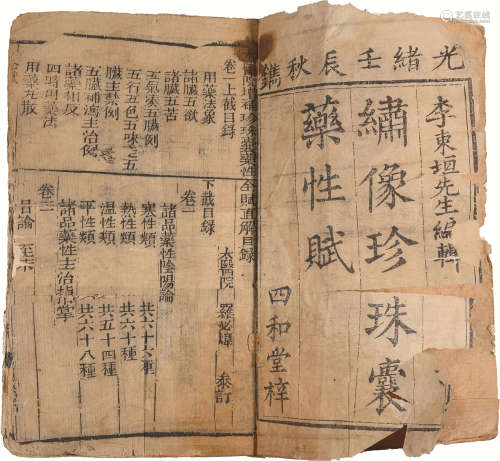 光緒壬辰秋鐫
李東垣先生編輯
繡像珍珠囊
藥性賦
四和堂梓
珍珠囊藥性全賦直解目錄
卷一上截目錄
用藥法象
諸臟五欲
諸臟五苦
五氣湊五臟例
五行五色五味走五
臟主禁例
五臟補瀉主治例
諸藥相反
四時用藥法
用藥丸散
下截目錄
太醫院 羅必煒 參訂
卷一
諸品藥性陰陽論
寒性類 共六十六種
熱性類 共六十種
溫性類 共五十四種
平性類 共六十八種
諸品藥性主治指掌
卷二